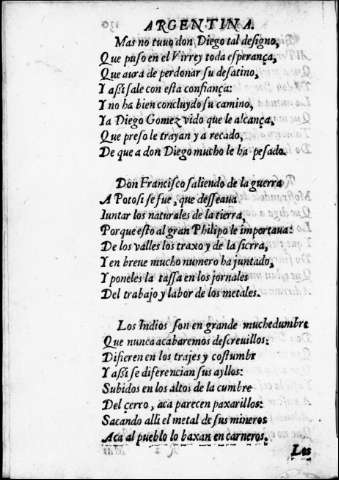 ARGENTINA.
Mas no tuuo don Diego tal designo,
Que puso en el Virrey toda esperança,
Que aura de perdonar su desatino,
Y assi sale con esta confiança:
Y no ha bien concluydo su camino,
Ya Diego Gomez vido que le alcança,
Que preso le trayan y a recado,
De que a don Diego mucho le ha pesado.
Don Francisco saliendo de la guerra
A Potosi se fue, que desseaua
Iuntar los naturales de la tierra,
Porque esto al gran Philipo le importaua:
De los valles los traxo y de la sierra,
Y en breue mucho numero ha juntado,
Y poneles la tassa en los jornales
Del trabajo y labor de los metales.
Los Indios son en grande muchedumbre
Que nunca acabaremos descreuillos:
Difieren en los trajes y costumbr
Y assi se diferencian sus ayllos:
Subidos en los altos de la cumbre
Del cerro, aca parecen paxarillos:
Sacando alli el metal de sus mineros
Aca al pueblo lo baxan en carneros.
Los